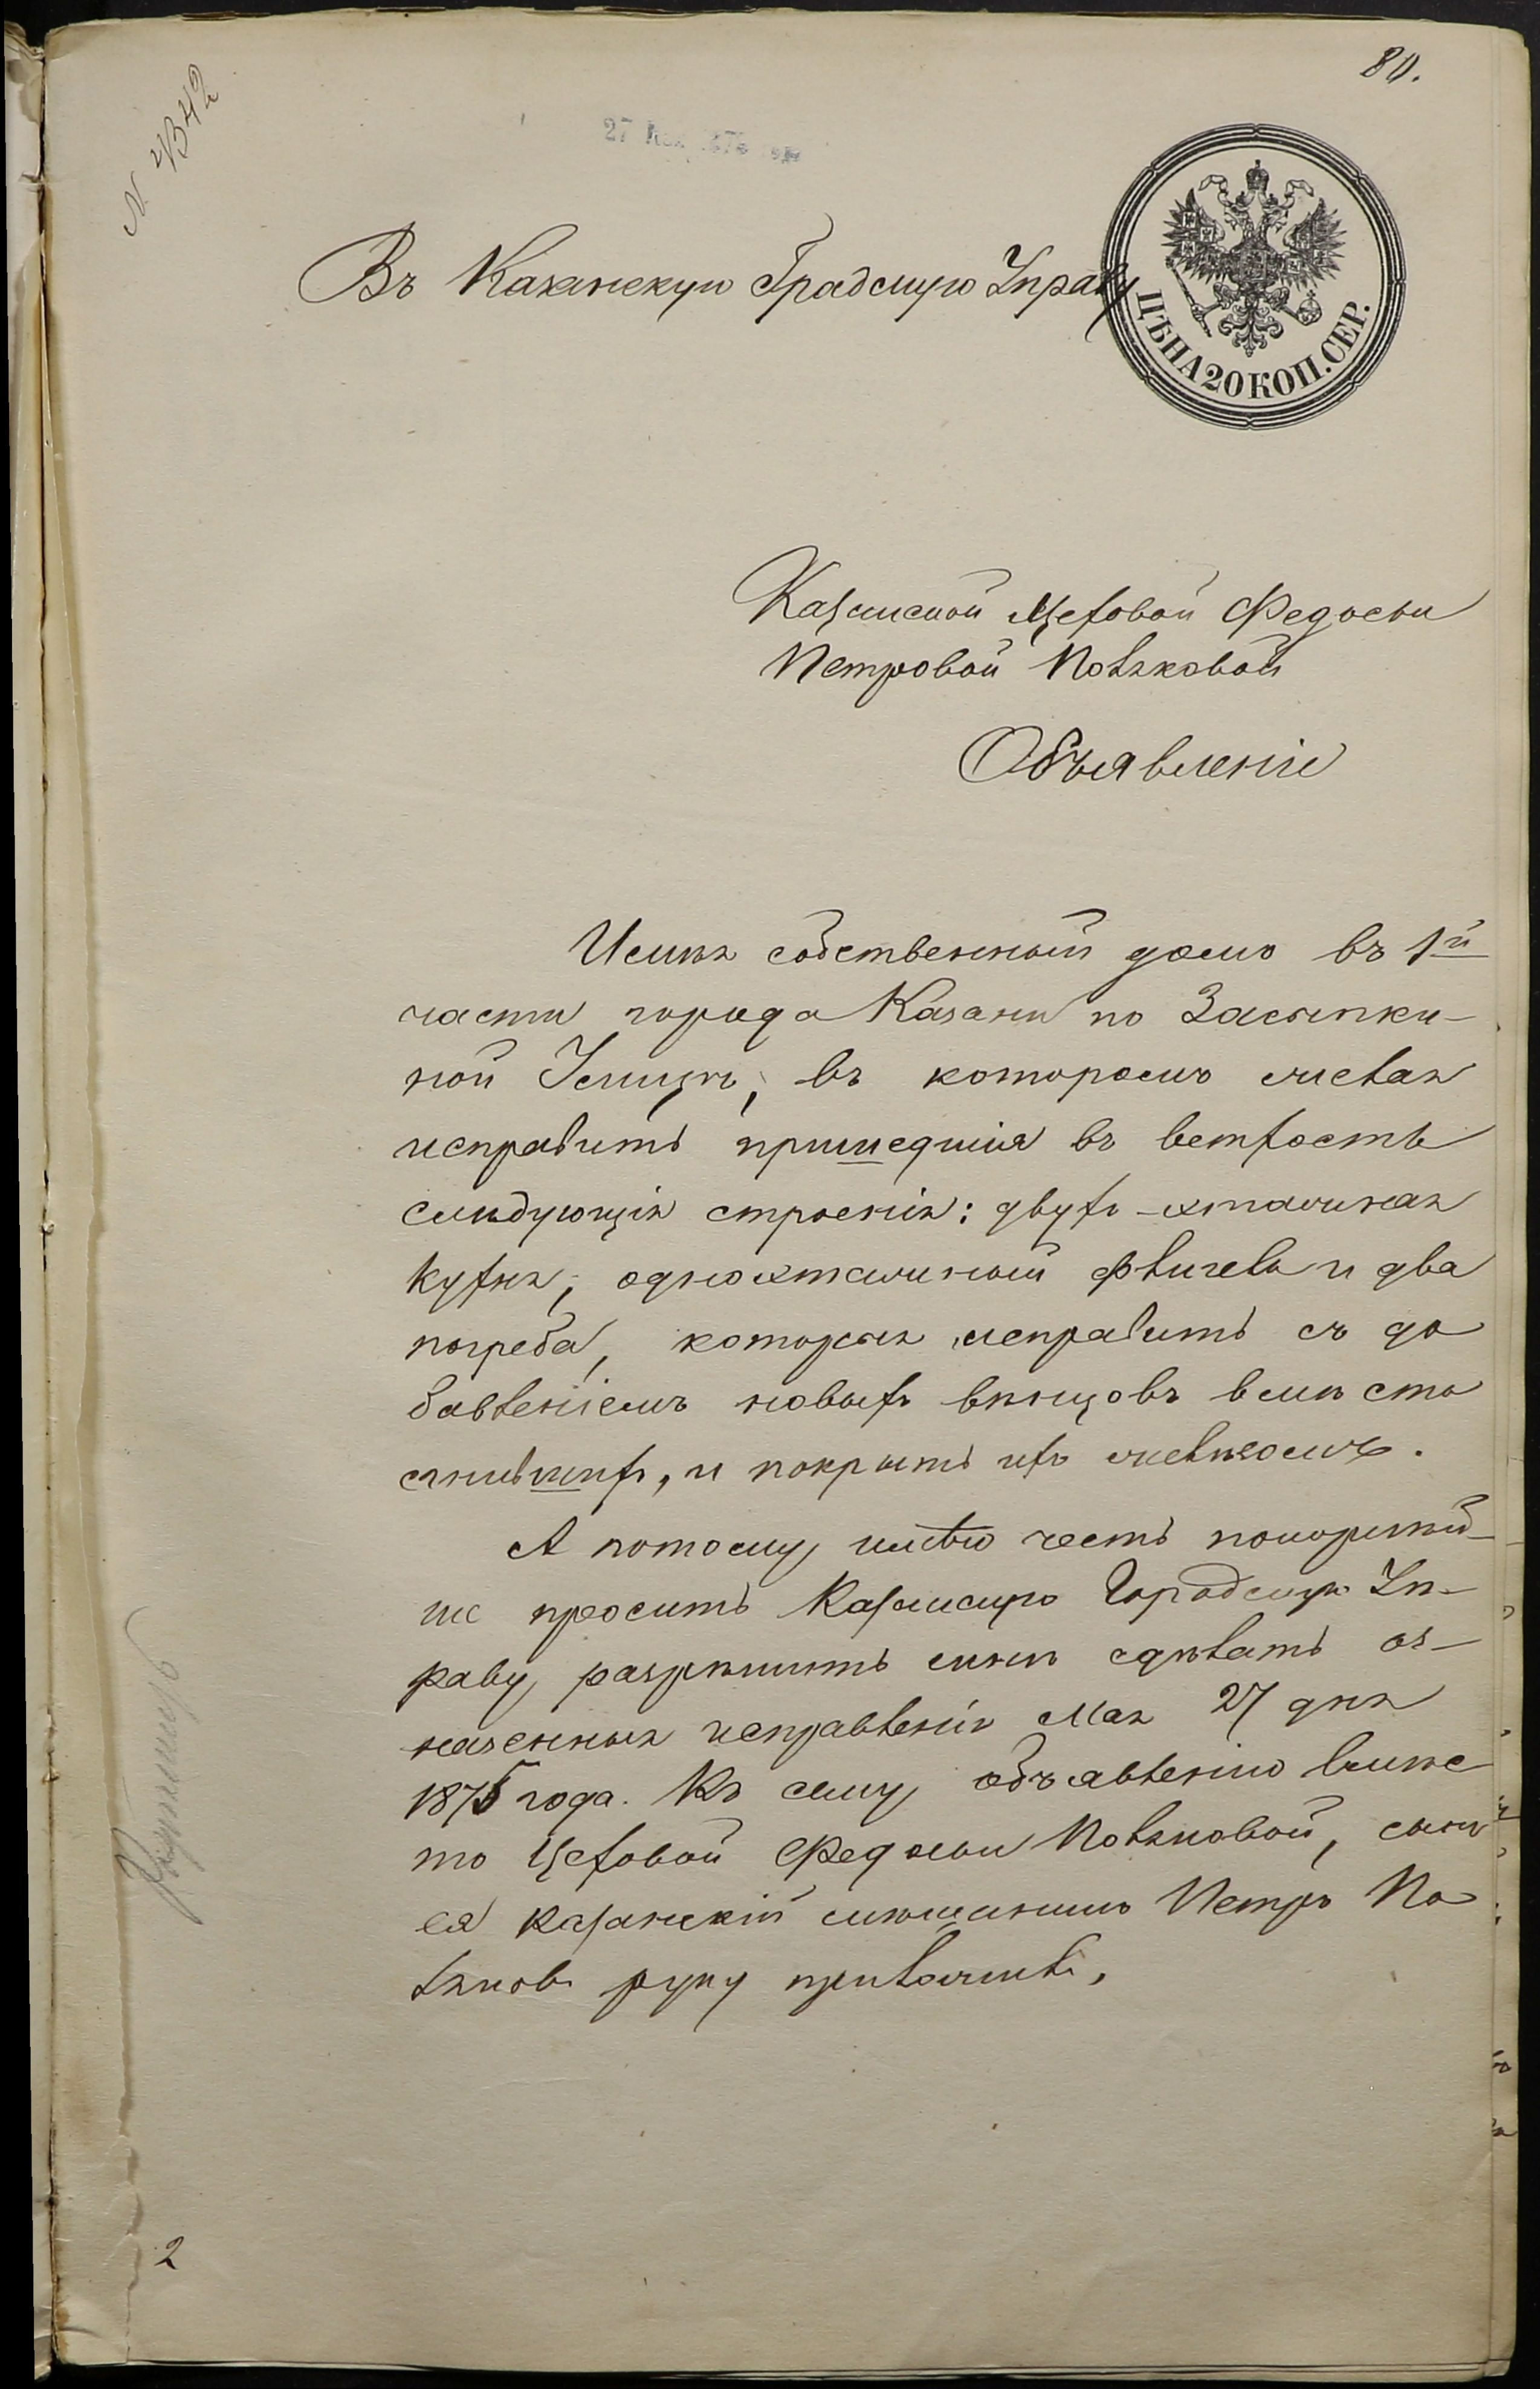 80.
N 4342
27 Мая 187 года
Въ Казанскую Градскую Управу
ЦѢНА 20 КОП. СЕР.
Казанской Цеховой Федосьи
Петровой Поляковой
Объявленіе
Имѣя собственный домъ въ 1й
части города Казани по Засыпки-
ной Улицѣ, въ которомъ желая
исправить пришедшія въ ветхость
слѣдующія строенія: двухъ-этажная
кухня, одноэтажный флигель и два
погреба, которыя исправить съ до
бавленіемъ новыхъ вѣнцовъ вмѣсто
сгнившихъ, и покрыть ихъ желѣзомъ.
А потому имѣю честь покорнѣй-
ше просить Казанскую Городскую Уп-
раву, разрѣшить мнѣ сдѣлать оз-
наченныя исправленія Мая 27 дня
1875 года. Къ сему объявленію вмѣс
то Цеховой Федосьи Поляковой, сынъ
ея казанскій мѣщанинъ Петръ По
ляковъ руку приложилъ.
2